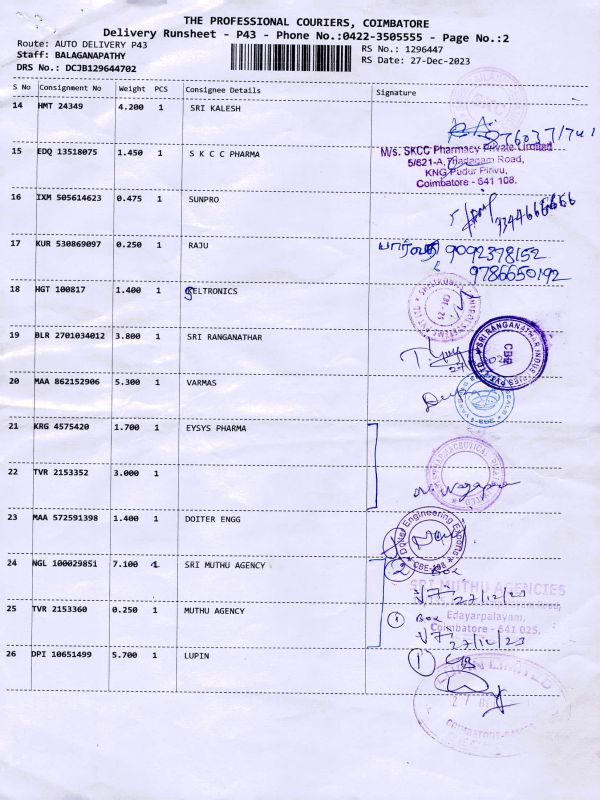 THE PROFESSIONAL COURIERS, COIMBATORE
Delivery Runsheet - P43 - Phone No.:0422-3505555 - Page No.:2
Route: AUTO DELIVERY P43
RS No.: 1296447
Staff: BALAGANAPATHY
RS Date: 27-Dec-2023
DRS No.: DCJB129644702
S No Consignment No Weight PCS Consignee Details Signature
14 HMT 24349 4.200 1 SRI KALESH
15 EDQ 13518075 1.450 1 S K C C PHARMA
M/s. SKCC Pharmacy Private Limited
5/621-A, Thadagam Road,
KNG Pudur Pirivu,
Coimbatore - 641 108.
16 IXM 505614623 0.475 1 SUNPRO
17 KUR 530869097 0.250 1 RAJU
9092378152
9786650192
18 HGT 100817 1.400 1 SELTRONICS
19 BLR 2701034012 3.800 1 SRI RANGANATHAR
SRI RANGANATHAR INDUSTRIES PVT LTD
CBE
20 MAA 862152906 5.300 1 VARMAS
21 KRG 4575420 1.700 1 EYSYS PHARMA
22 TVR 2153352 3.000 1
23 MAA 572591398 1.400 1 DOITER ENGG
Doiter Engineering Exports
24 NGL 100029851 7.100 1 SRI MUTHU AGENCY
2 Box
SRI MUTHU AGENCIES
27/12/23
Edayarpalayam,
Coimbatore - 641 025.
25 TVR 2153360 0.250 1 MUTHU AGENCY
1 Box
27/12/23
26 DPI 10651499 5.700 1 LUPIN
1
LUPIN LIMITED